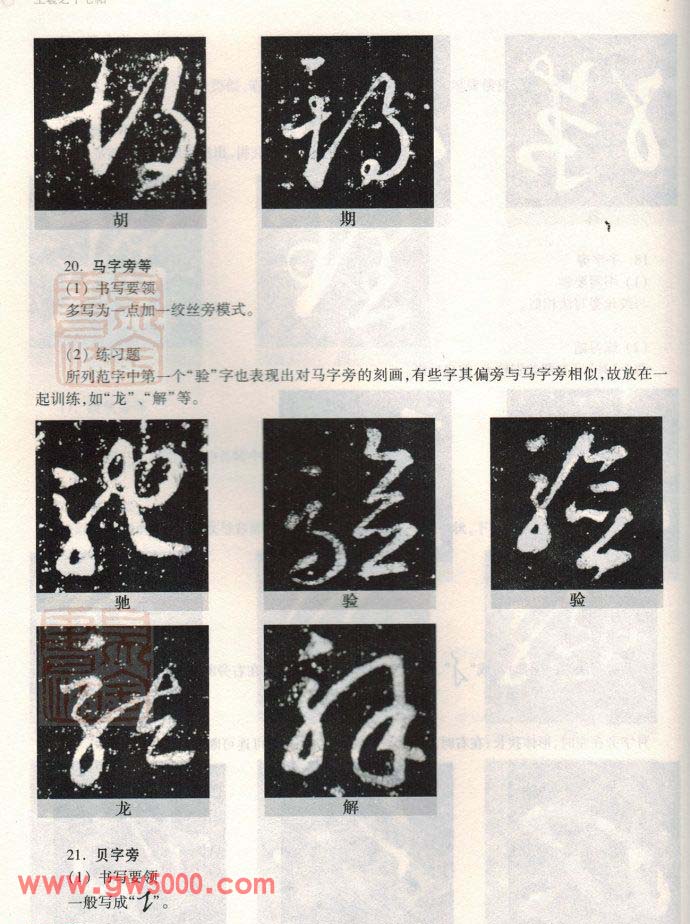 胡 期
20. 马字旁等
(1) 书写要领
多写为一点加一绞丝旁模式。
(2) 练习题
所列范字中第一个“验”字也表现出对马字旁的刻画,有些字其偏旁与马字旁相似,故放在一
起训练,如“龙”、“解”等。
驰 验 验
龙 解
21. 贝字旁
(1) 书写要领
www.gw5000.com
一般写成“ ”。